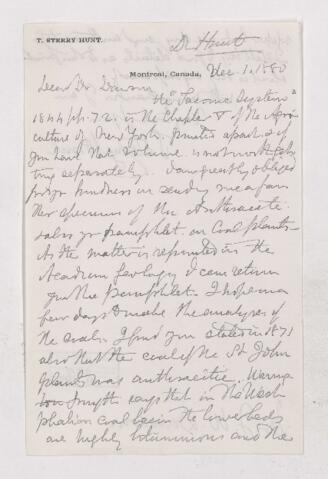 T. STERRY HUNT.
Dr Hunt
Montreal, Canada, Dec. 1. 1880
Dear Dr Dawson
The Taconic System
1844, pp. 72. is the Chapter V of the Agri
culture of New York. printed apart & if
you have that volume is not worth
ting separately. I am greatly obliged
for yr kindness in sending me a fur
ther specimen of the Anthracite
also yr pamphlet on Coal plants
As the matter is reprinted in the
Acadian Geology I can return
you the pamphlet. I hope in a
few days to make the analyses of
the coal. I find you stated in 1871
also that the coal of the St John
plants was anthracitic. Waring
Smyth says that in the West
phalian coal basin the lower beds
are highly bituminous and the